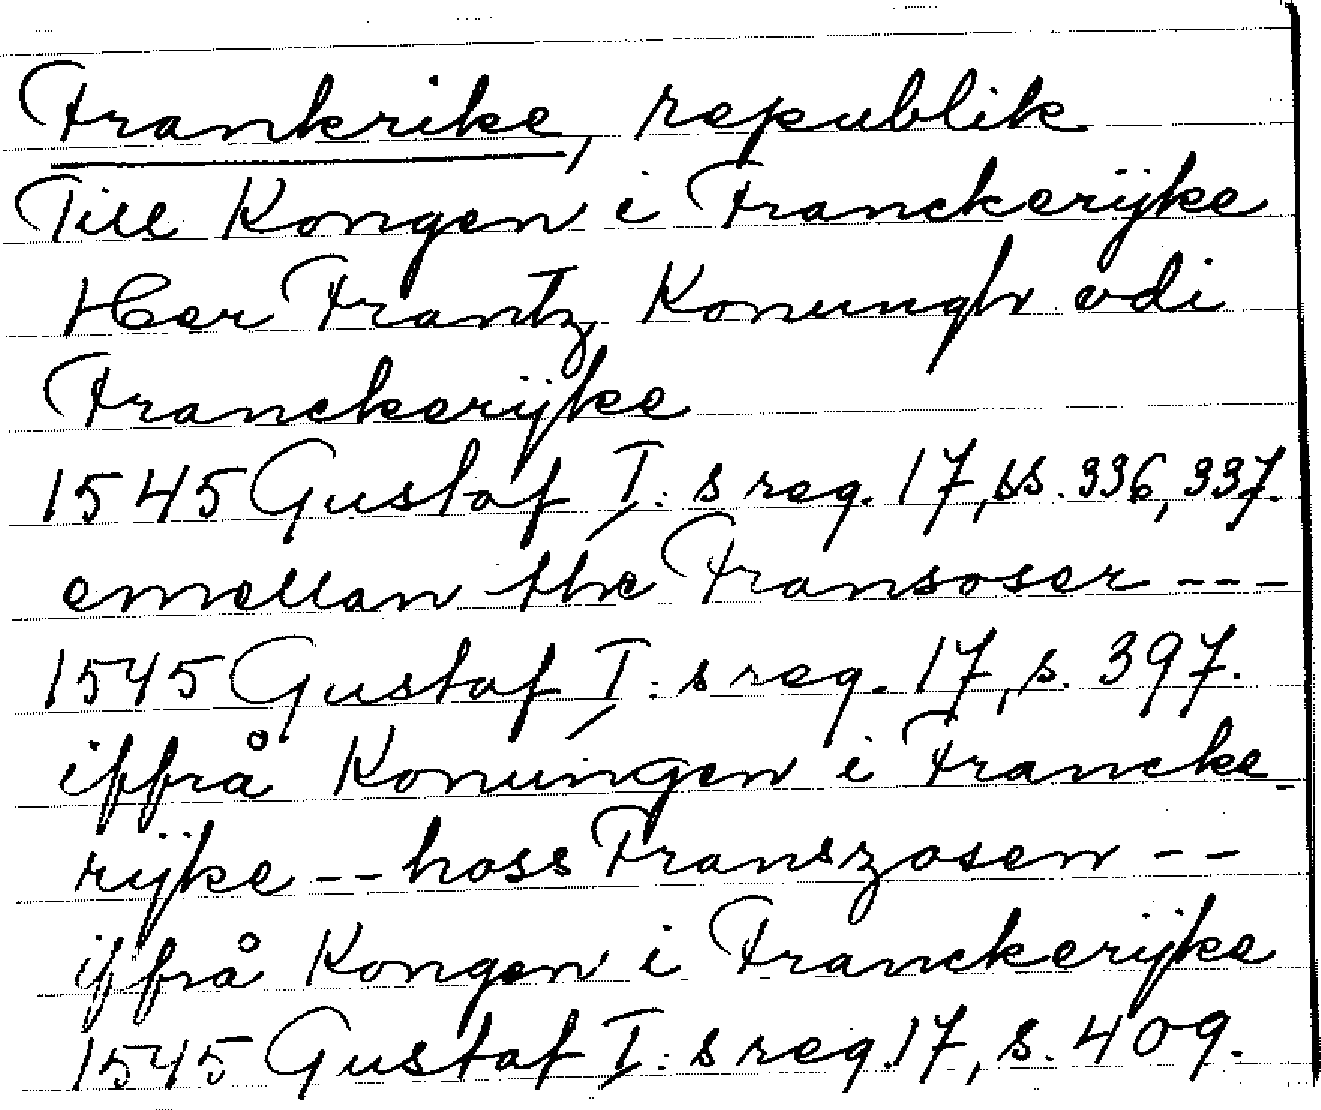 Frankrike, republik
Till Kongen i Franckerijke
Her Frantz Konungh vdi
Franckerijke
1545 Gustaf I:s reg. 17, ss. 336, 337.
emellan the Fransoser ---
1545 Gustaf I:s reg. 17, s. 397.
iffrå Konungen i Francke-
rijke -- hoss Franszosen --
iffrå Kongen i Franckerijke
1545 Gustaf I:s reg 17, s. 409.